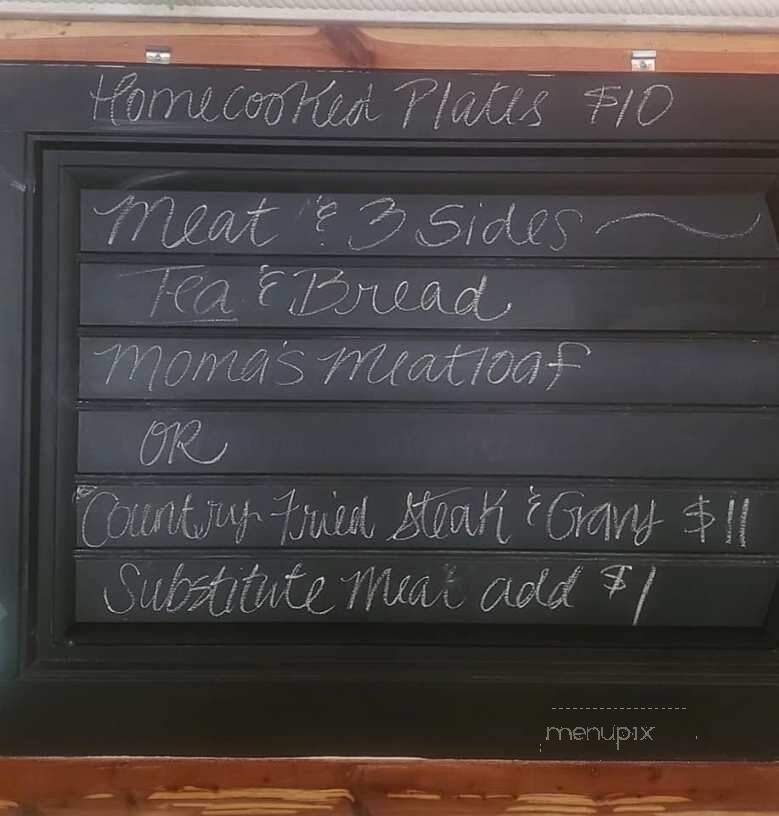 Homecooked Plates $10
Meat & 3 Sides
Tea & Bread
Moma's Meatloaf
OR
Country Fried Steak & Gravy $11
Substitute Meat add $1
menupix